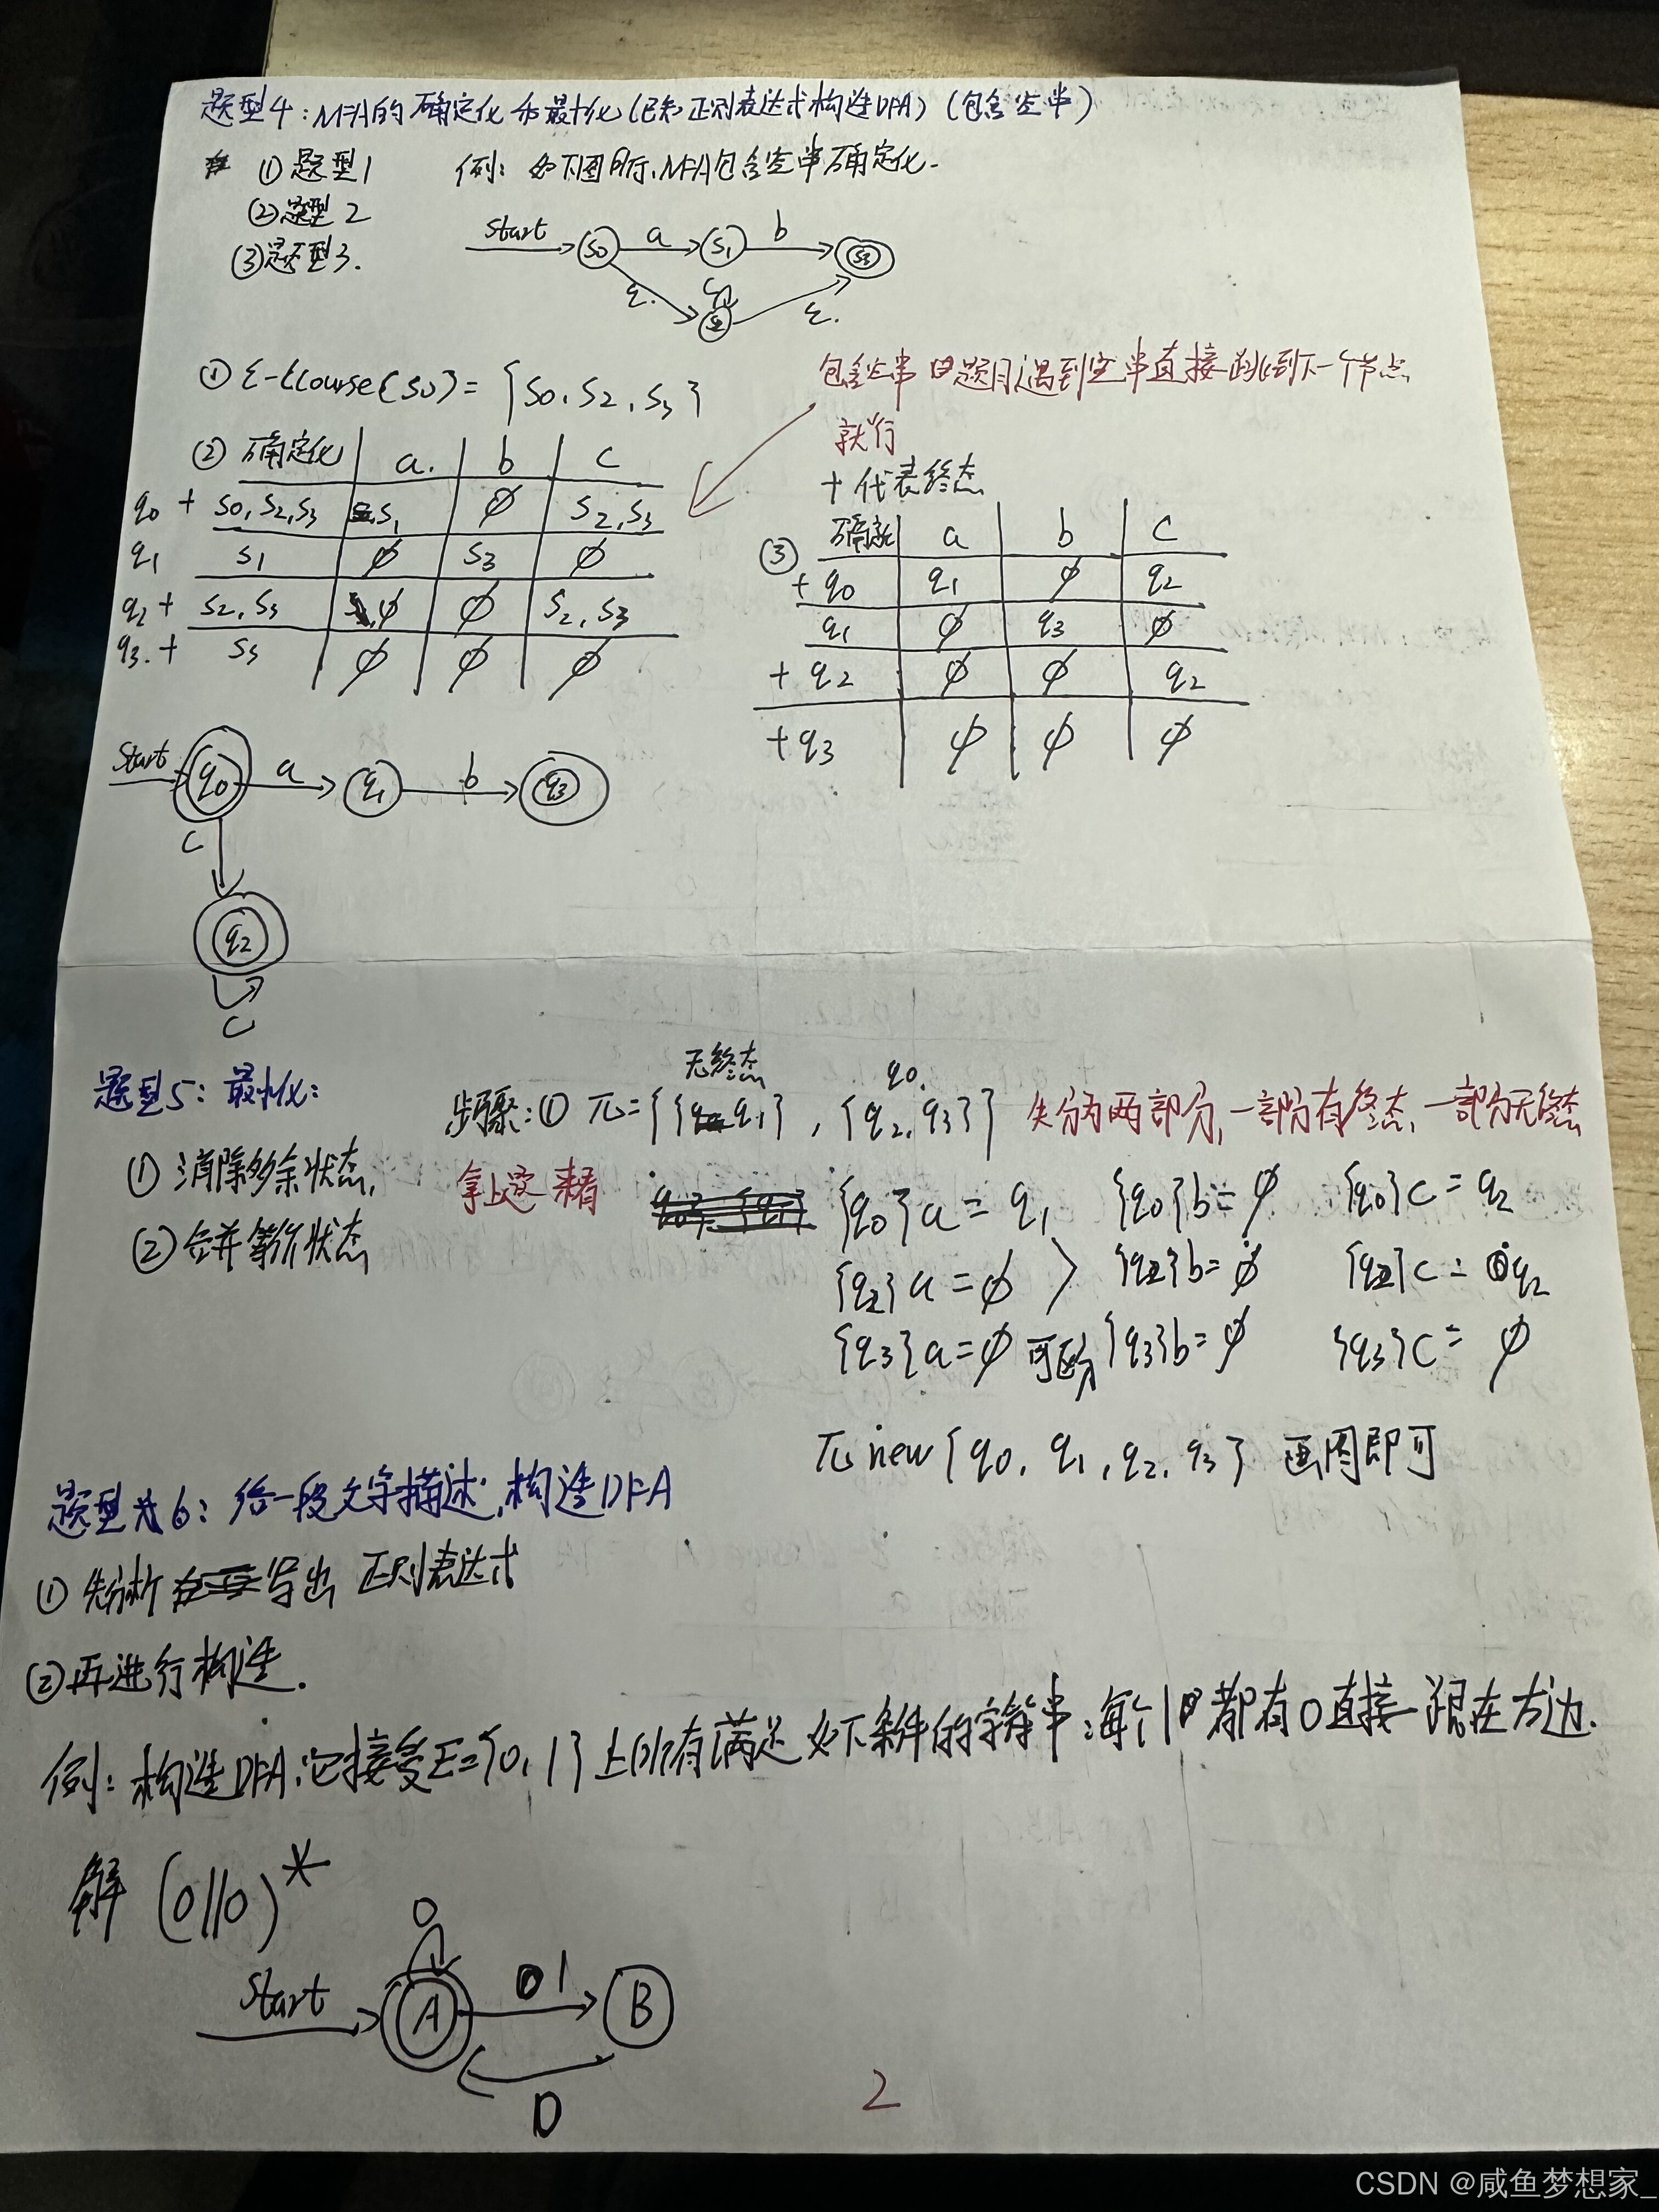 题型4：NFA的确定化和最小化(已知正则表达式构造DFA)(包含空串)
①题型1
②题型2
③题型3.
例：如下图所示,NFA包含空串确定化.
start s0 a s1 b s3
ε. c s2 ε.
① ε-closure(s0) = {s0, s2, s3}
包含空串的题目遇到空串直接跳到下一个节点
就行
+代表终态
② 确定化 a. b c
q0 + s0,s2,s3 s1 ∅ s2,s3
q1 s1 ∅ s3 ∅
q2 + s2,s3 ∅ ∅ s2,s3
q3. + s3 ∅ ∅ ∅
③ 确定化 a b c
+ q0 q1 ∅ q2
q1 ∅ q3 ∅
+ q2 ∅ ∅ q2
+ q3 ∅ ∅ ∅
start q0 a q1 b q3
c
q2
c
题型5：最小化:
①消除多余状态,
②合并等价状态
无终态 q0.
步骤:① π={{q1}, {q2,q3}} 先分为两部分,一部分有终态,一部分无终态
{q0}a = q1 {q0}b=∅ {q0}c = q2
{q2}a = ∅ {q2}b=∅ {q2}c = q2
{q3}a=∅ 可区分 {q3}b=∅ {q3}c= ∅
π new{q0, q1, q2, q3} 画图即可
题型6：给一段文字描述,构造DFA
①先分析 写出 正则表达式
②再进行构造.
例：构造DFA,它接受Σ={0,1}上所有满足如下条件的字符串:每个1都有0直接跟在右边.
解 (0|10)*
0
start A 1 B
0
2
CSDN @咸鱼梦想家_